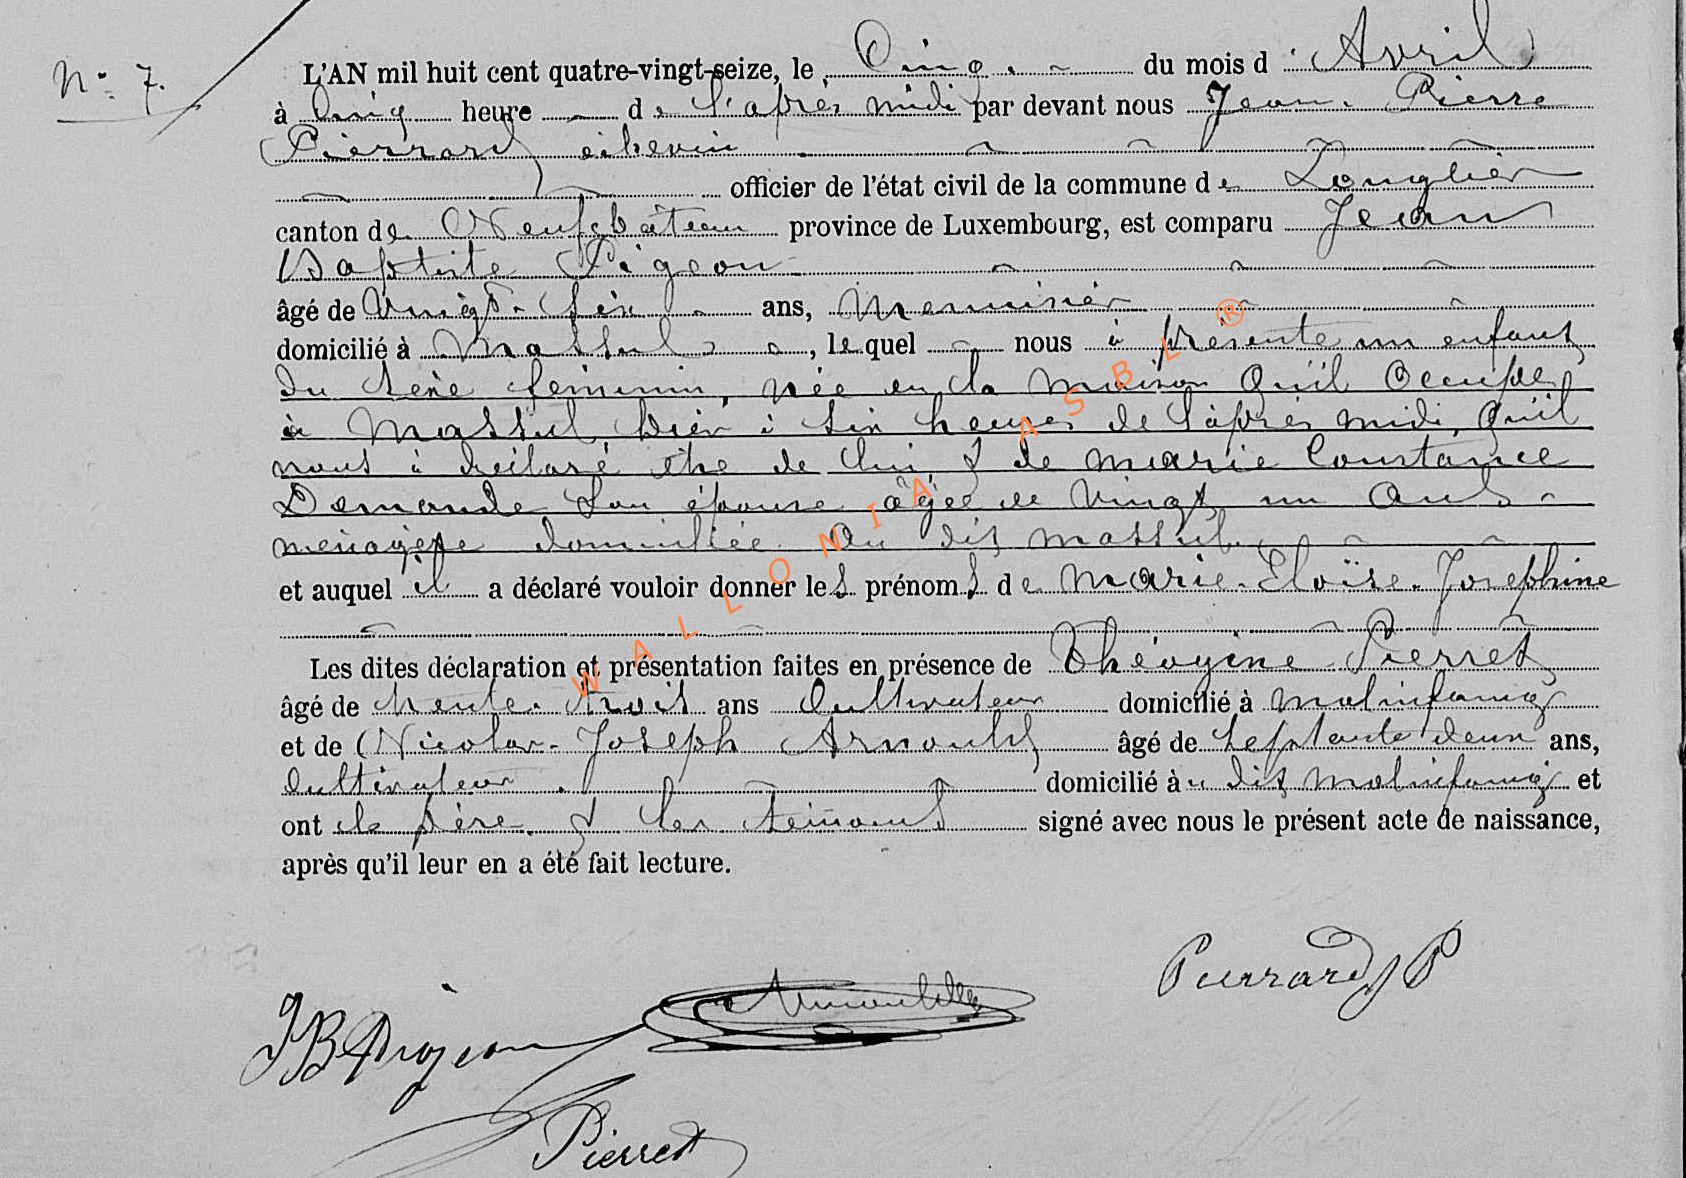 N° 7.
L'AN mil huit cent quatre-vingt-seize, le Cinq du mois d'Avril
à Cinq heure de l'après midi par devant nous Jean Pierre
Pierrard échevin
officier de l'état civil de la commune de Longlier
canton de Neufchâteau province de Luxembourg, est comparu Jean
Baptiste Pigeon
âgé de Vingt-Six ans, Menuisier
domicilié à Massul, lequel nous à présenté un enfant
du sexe féminin, née en la maison qu'il occupe
à Massul, hièr à six heures de l'après midi, qu'il
nous à déclaré être de lui & de Marie Constance
Demande son épouse âgée de vingt un ans
ménagère domiciliée au dit Massul
et auquel il a déclaré vouloir donner les prénoms de Marie-Eloïse-Joséphine
Les dites déclaration et présentation faites en présence de Théogène Pierret
âgé de trente-trois ans Cultivateur domicilié à Molinfaing
et de Nicolas-Joseph Arnould âgé de Septante deux ans,
Cultivateur domicilié au dit Molinfaing et
ont le père & les témoins signé avec nous le présent acte de naissance,
après qu'il leur en a été fait lecture.
JB Pigeon Arnould Pierrard JP
Pierret
WALLONIA ASBL ®